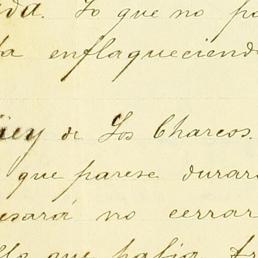 da. Lo que no po
ta enflaqueciendo
uey de Los Charcos.
que parese durar
sará no cerrar
llo que habia tr